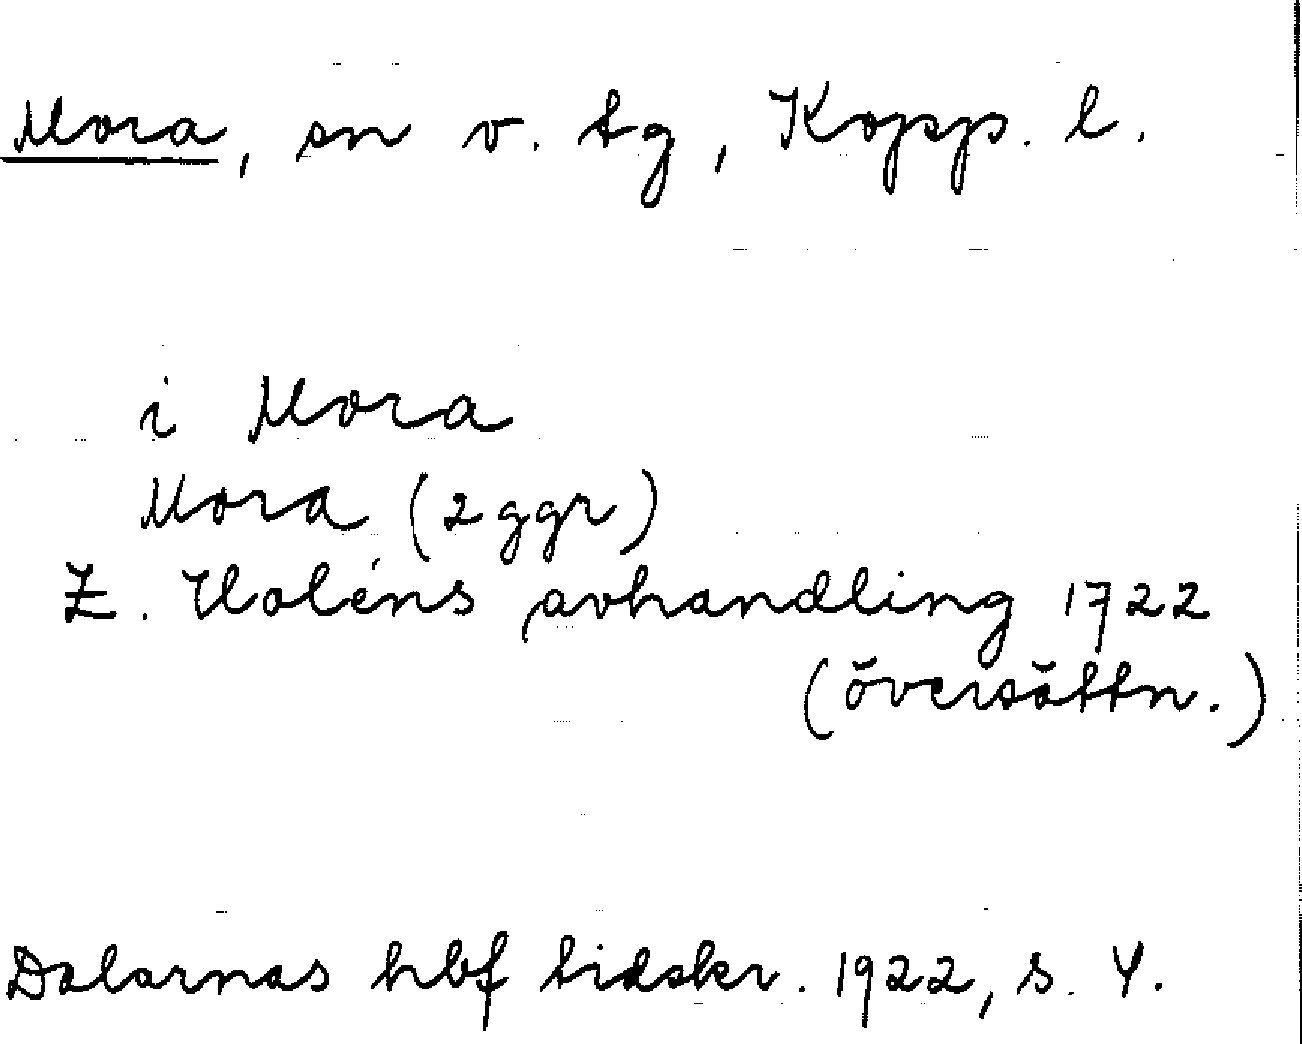 Mora, sn v. tg, Kopp. l.
i Mora
Mora (2 ggr)
Z. Holéns avhandling 1722
(översättn.)
Dalarnas hbf tidskr. 1922, s. 4.